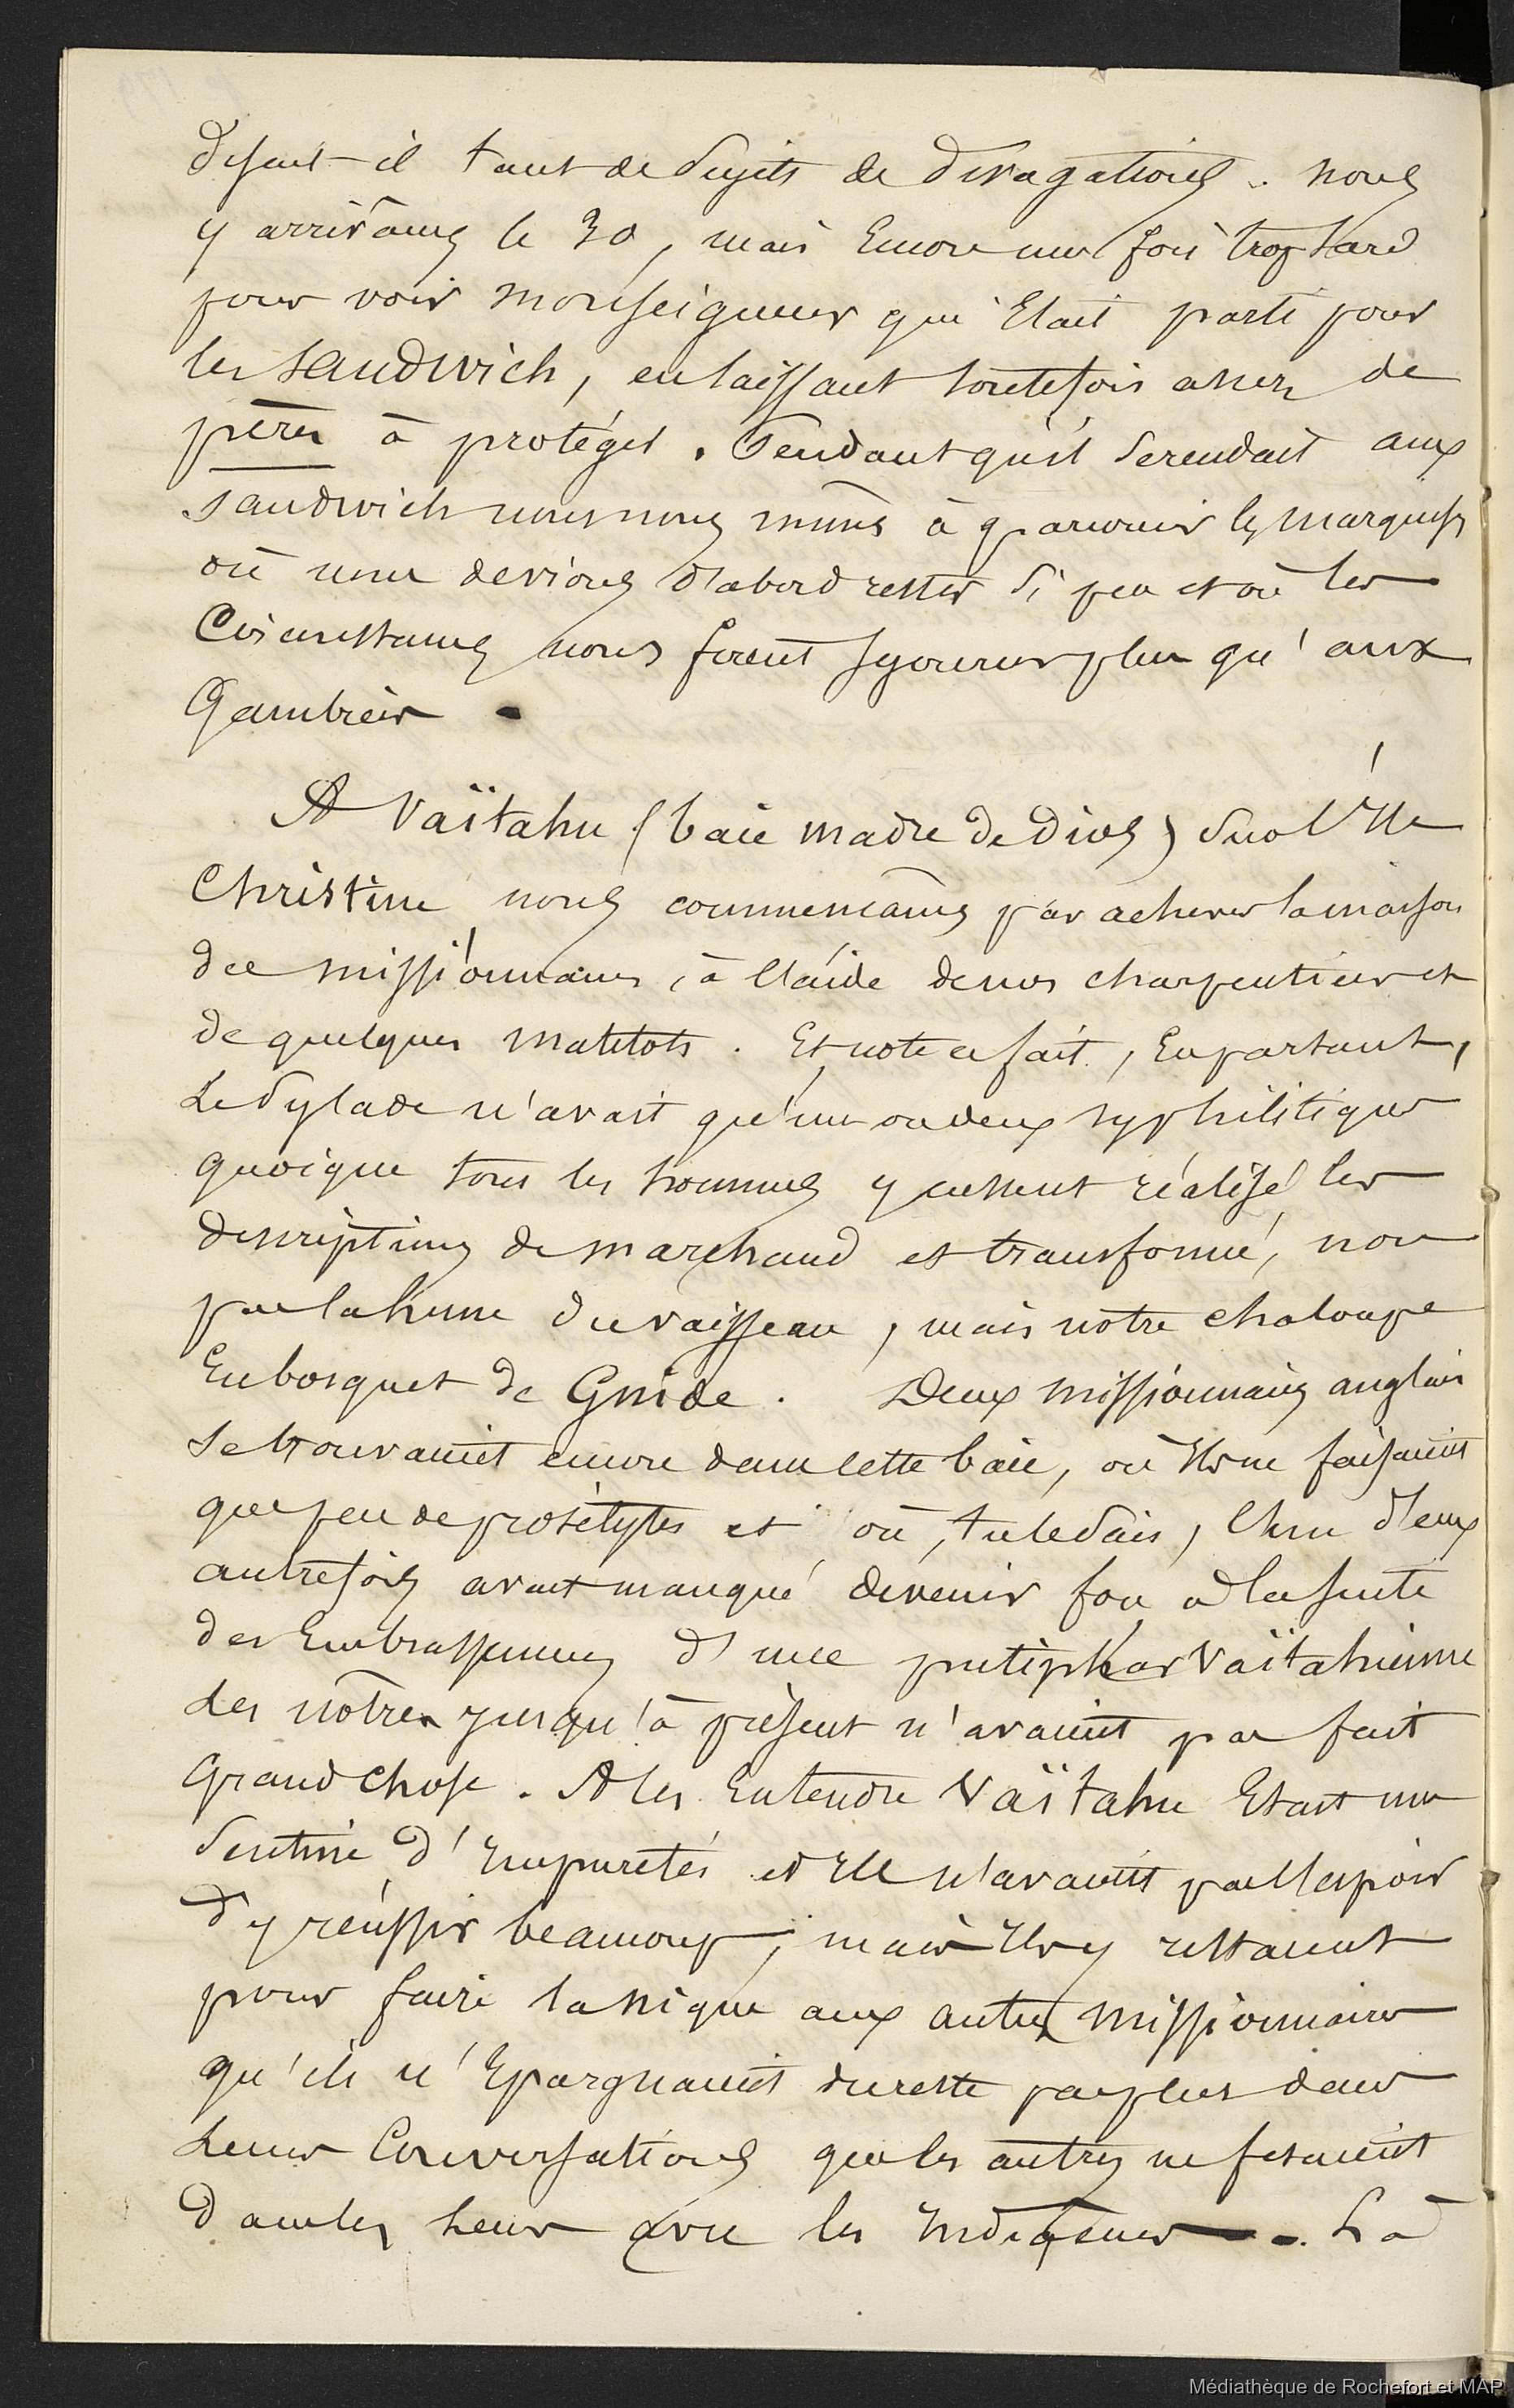 disait-il tant de sujets de divagations. nous
y arrivâmes le 30, mais Encore une fois trop tard
pour voir Monseigneur qui Etait parti pour
les Sandwich, en laissant toutefois assez de
pères à protéger. Pendant qu'il se rendait aux
Sandwich nous nous mîmes à parcourir les marquises
où nous devions d'abord rester si peu et où les
Circonstances nous firent séjourner plus qu'aux
Gambier.
A Vaïtahu (baie madre de Dios) sur l'Ile
Christine nous commençâmes par achever la maison
des missionnaires, à l'aide de nos charpentiers et
de quelques matelots. Et note ce fait, En partant,
Le Pylade n'avait qu'un ou deux syphilitiques
quoique tous les hommes y eussent réalisé les
descriptions de marchand et transformé, non
pas la hune du vaisseau, mais notre chaloupe
En bosquet de Gnide. Deux missionnaires anglais
se trouvaient encore dans cette baie, où Ils ne faisaient
que peu de prosélytes et où, tu le sais, l'un d'eux
autrefois avait manqué devenir fou à la suite
des Embrassemens d'une putiphar Vaïtahienne
Les nôtres jusqu'à présent n'avaient pas fait
Grand chose. A les Entendre Vaïtahu Etait une
Sentine d'Impuretés et Ils n'avaient pas l'espoir
d'y réussir beaucoup; mais Ils y restaient
pour faire la nique aux autres missionnaires
qu'ils n'Epargnaient du reste pas plus dans
Leurs Conversations que les autres ne fesaient
dans les leurs avec les Indigènes --. Là